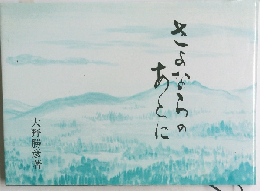 さよならの
あとに
大野勝彦著